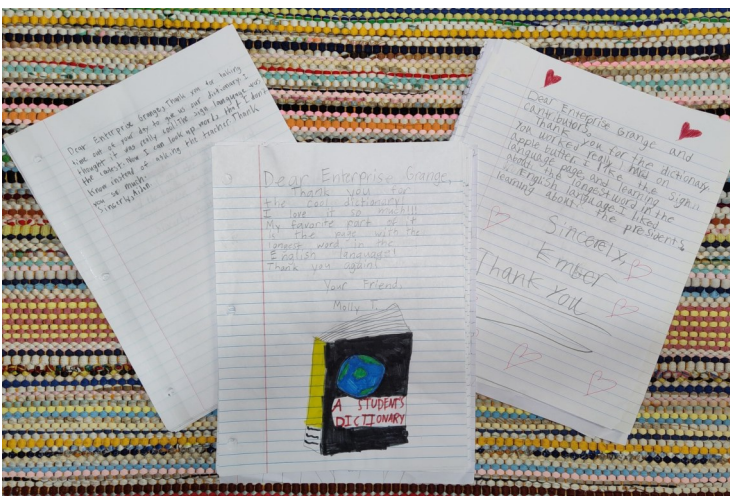 Dear Enterprise Grange, Thank you for taking
time out of your day to give us our dictionary. I
thought it was really cool. The sign language was
the coolest. Now I can look up words that I don't
know instead of asking the teacher. Thank
you so much!
Sincerly,
Dear Enterprise Grange,
Thank you for
the cool dictionary!
I love it so much!!!
My favorite part of it
is the page with the
longest word, in the
English language!
Thank you again!
Your Friend,
Molly T.
A STUDENT'S
DICTIONARY
Dear Enterprise Grange and
contributors,
Thank you for the dictionary
You worked really hard on
apple butter. I like the Sign
language page, and learning
about the longest word in the
English language. I liked
learning about the presidents
Sincerely,
Ember
Thank You